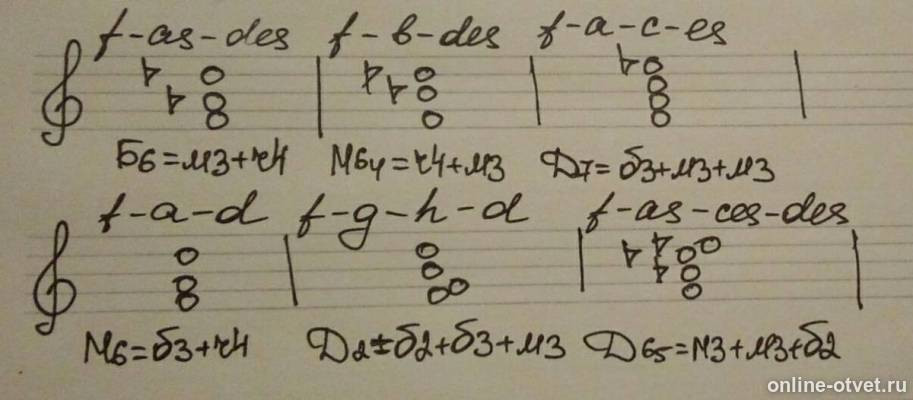 f-as-des f-b-des f-a-c-es
Б6=м3+ч4 М64=ч4+м3 Д7=б3+м3+м3
f-a-d f-g-h-d f-as-ces-des
М6=б3+ч4 Д2=б2+б3+м3 Д65=м3+м3+б2
online-otvet.ru